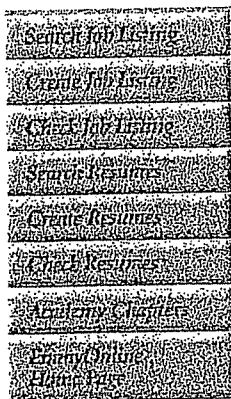 Search Job Listing
Create Job Listing
Check Job Listing
Search Resumes
Create Resumes
Check Resumes
Academy Chapters
Online
Home Page